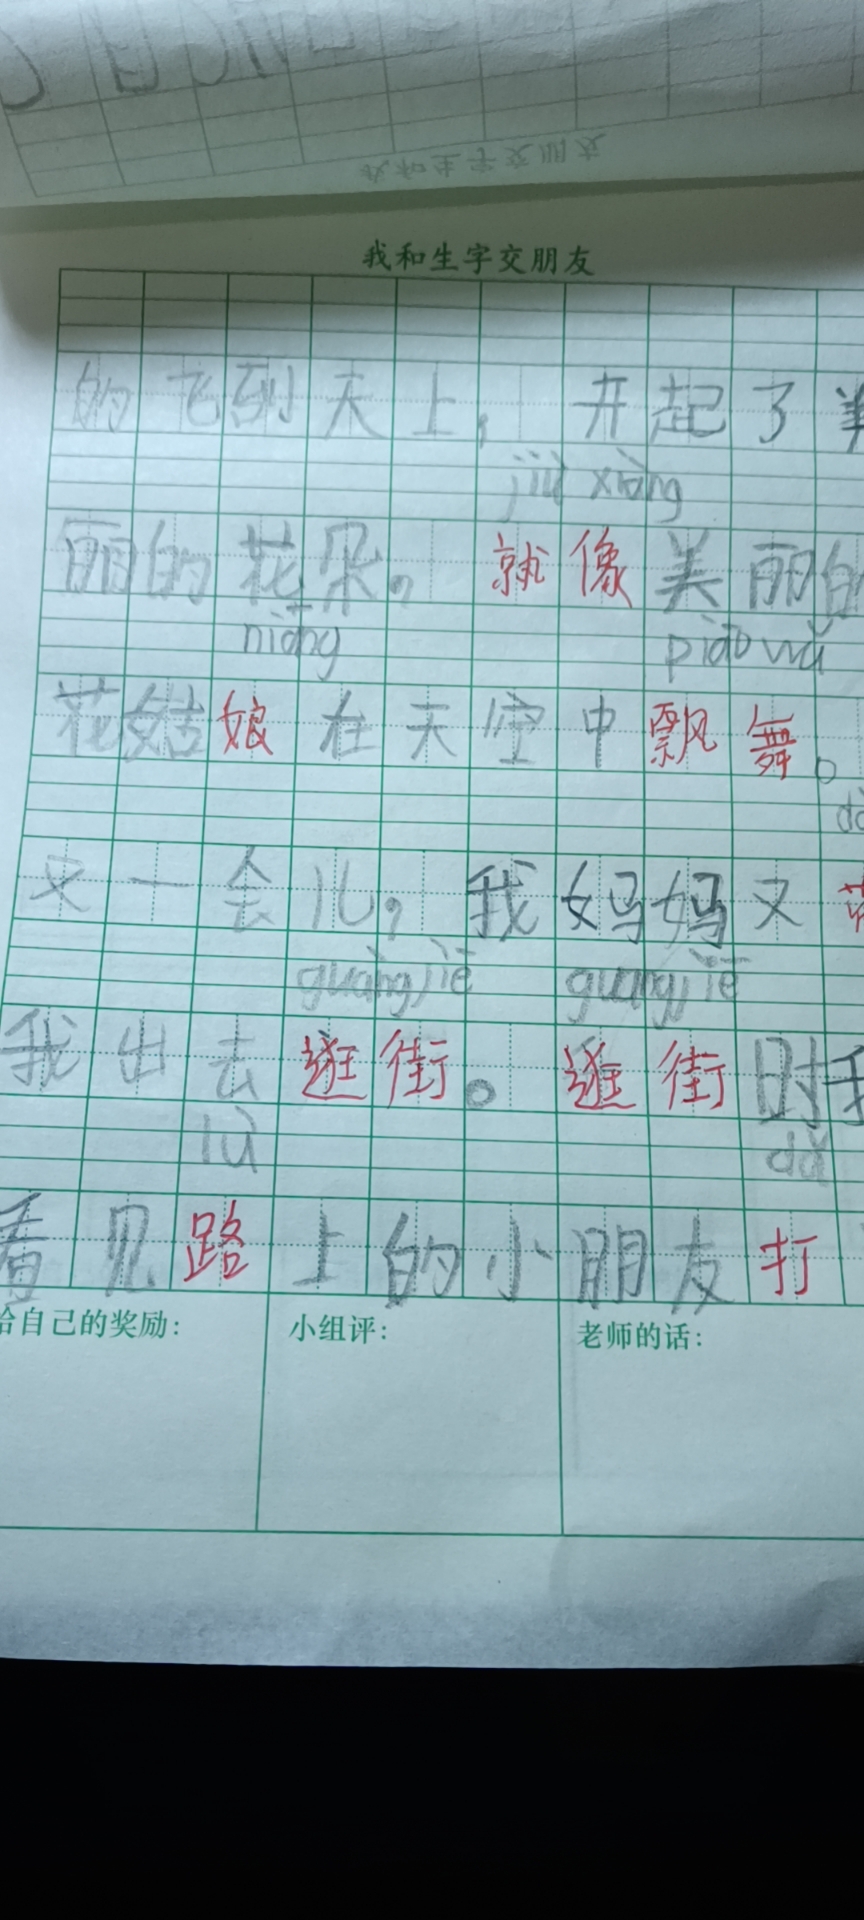 我和生字交朋友
我和生字交朋友
的飞到天上，开起了美
jiù xiàng
丽的花朵，就像美丽的
niáng piāo wǔ
花姑娘在天空中飘舞。
又一会儿，我妈妈又
guàng jiē guàng jiē
我出去逛街。逛街时我
lù dǎ
看见路上的小朋友打
给自己的奖励：
小组评：
老师的话：